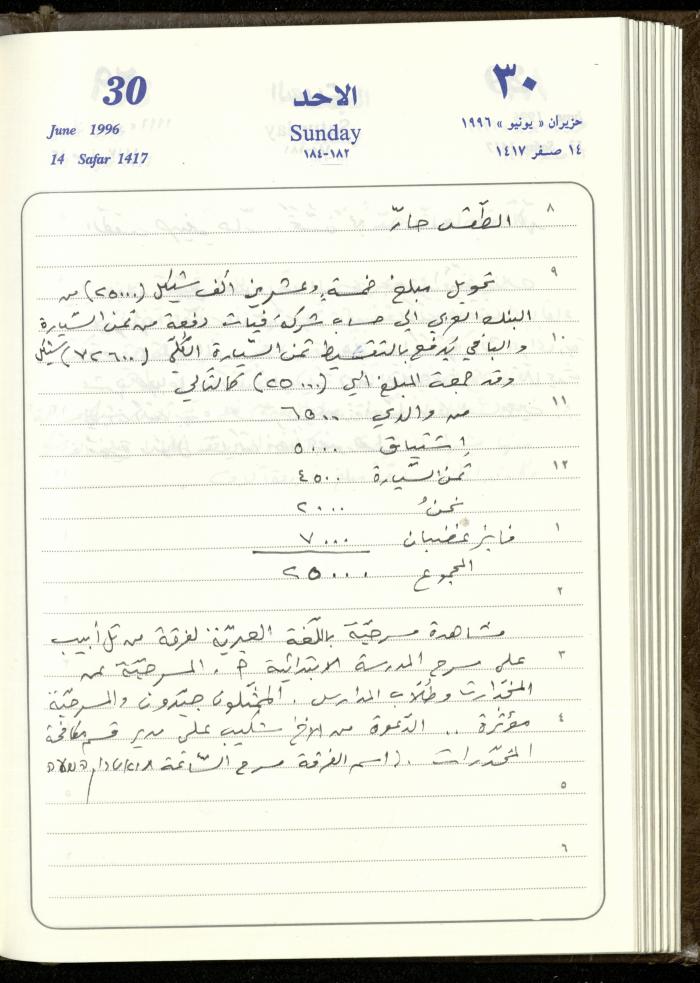 30
June 1996
14 Safar 1417
الاحد
Sunday
١٨٢-١٨٤
٣٠
حزيران « يونيو » ١٩٩٦
١٤ صفر ١٤١٧
٨
الطّقس حارّ
٩
تحويل مبلغ خمسة وعشرين ألف شيكل (٢٥٠٠٠) من
البنك العربي الى حساب شركة فيات دفعة من ثمن السّيارة
١٠
والباقي يُدفع بالتقسيط ثمن السّيارة الكُلّي (٧٢٦٠٠) شيكل
وقد جمعة المبلغ الي (٢٥٠٠٠) كالتّالي
١١
من والدي ٦٥٠٠
إشتياق ٥٠٠٠
١٢
ثمن السّيارة ٤٥٠٠
نحنُ ٢٠٠٠
١
فايز غضبان ٧٠٠٠
المجموع ٢٥٠٠٠
٢
مشاهدة مسرحيّة باللّغة العبريّة لفرقة من تل أبيب
٣
على مسرح المدرسة الابتدائية ج. المسرحيّة عن
المخدّرات وطُلّاب المدارس. الممثّلون جيّدون والمسرحيّة
٤
مؤثّرة .. الدّعوة من الاخ شكيب علي مدير قسم مكافحة
المخدّرات . (اسم الفرقة مسرح السّاعة תיאטרון השעה
٥
٦